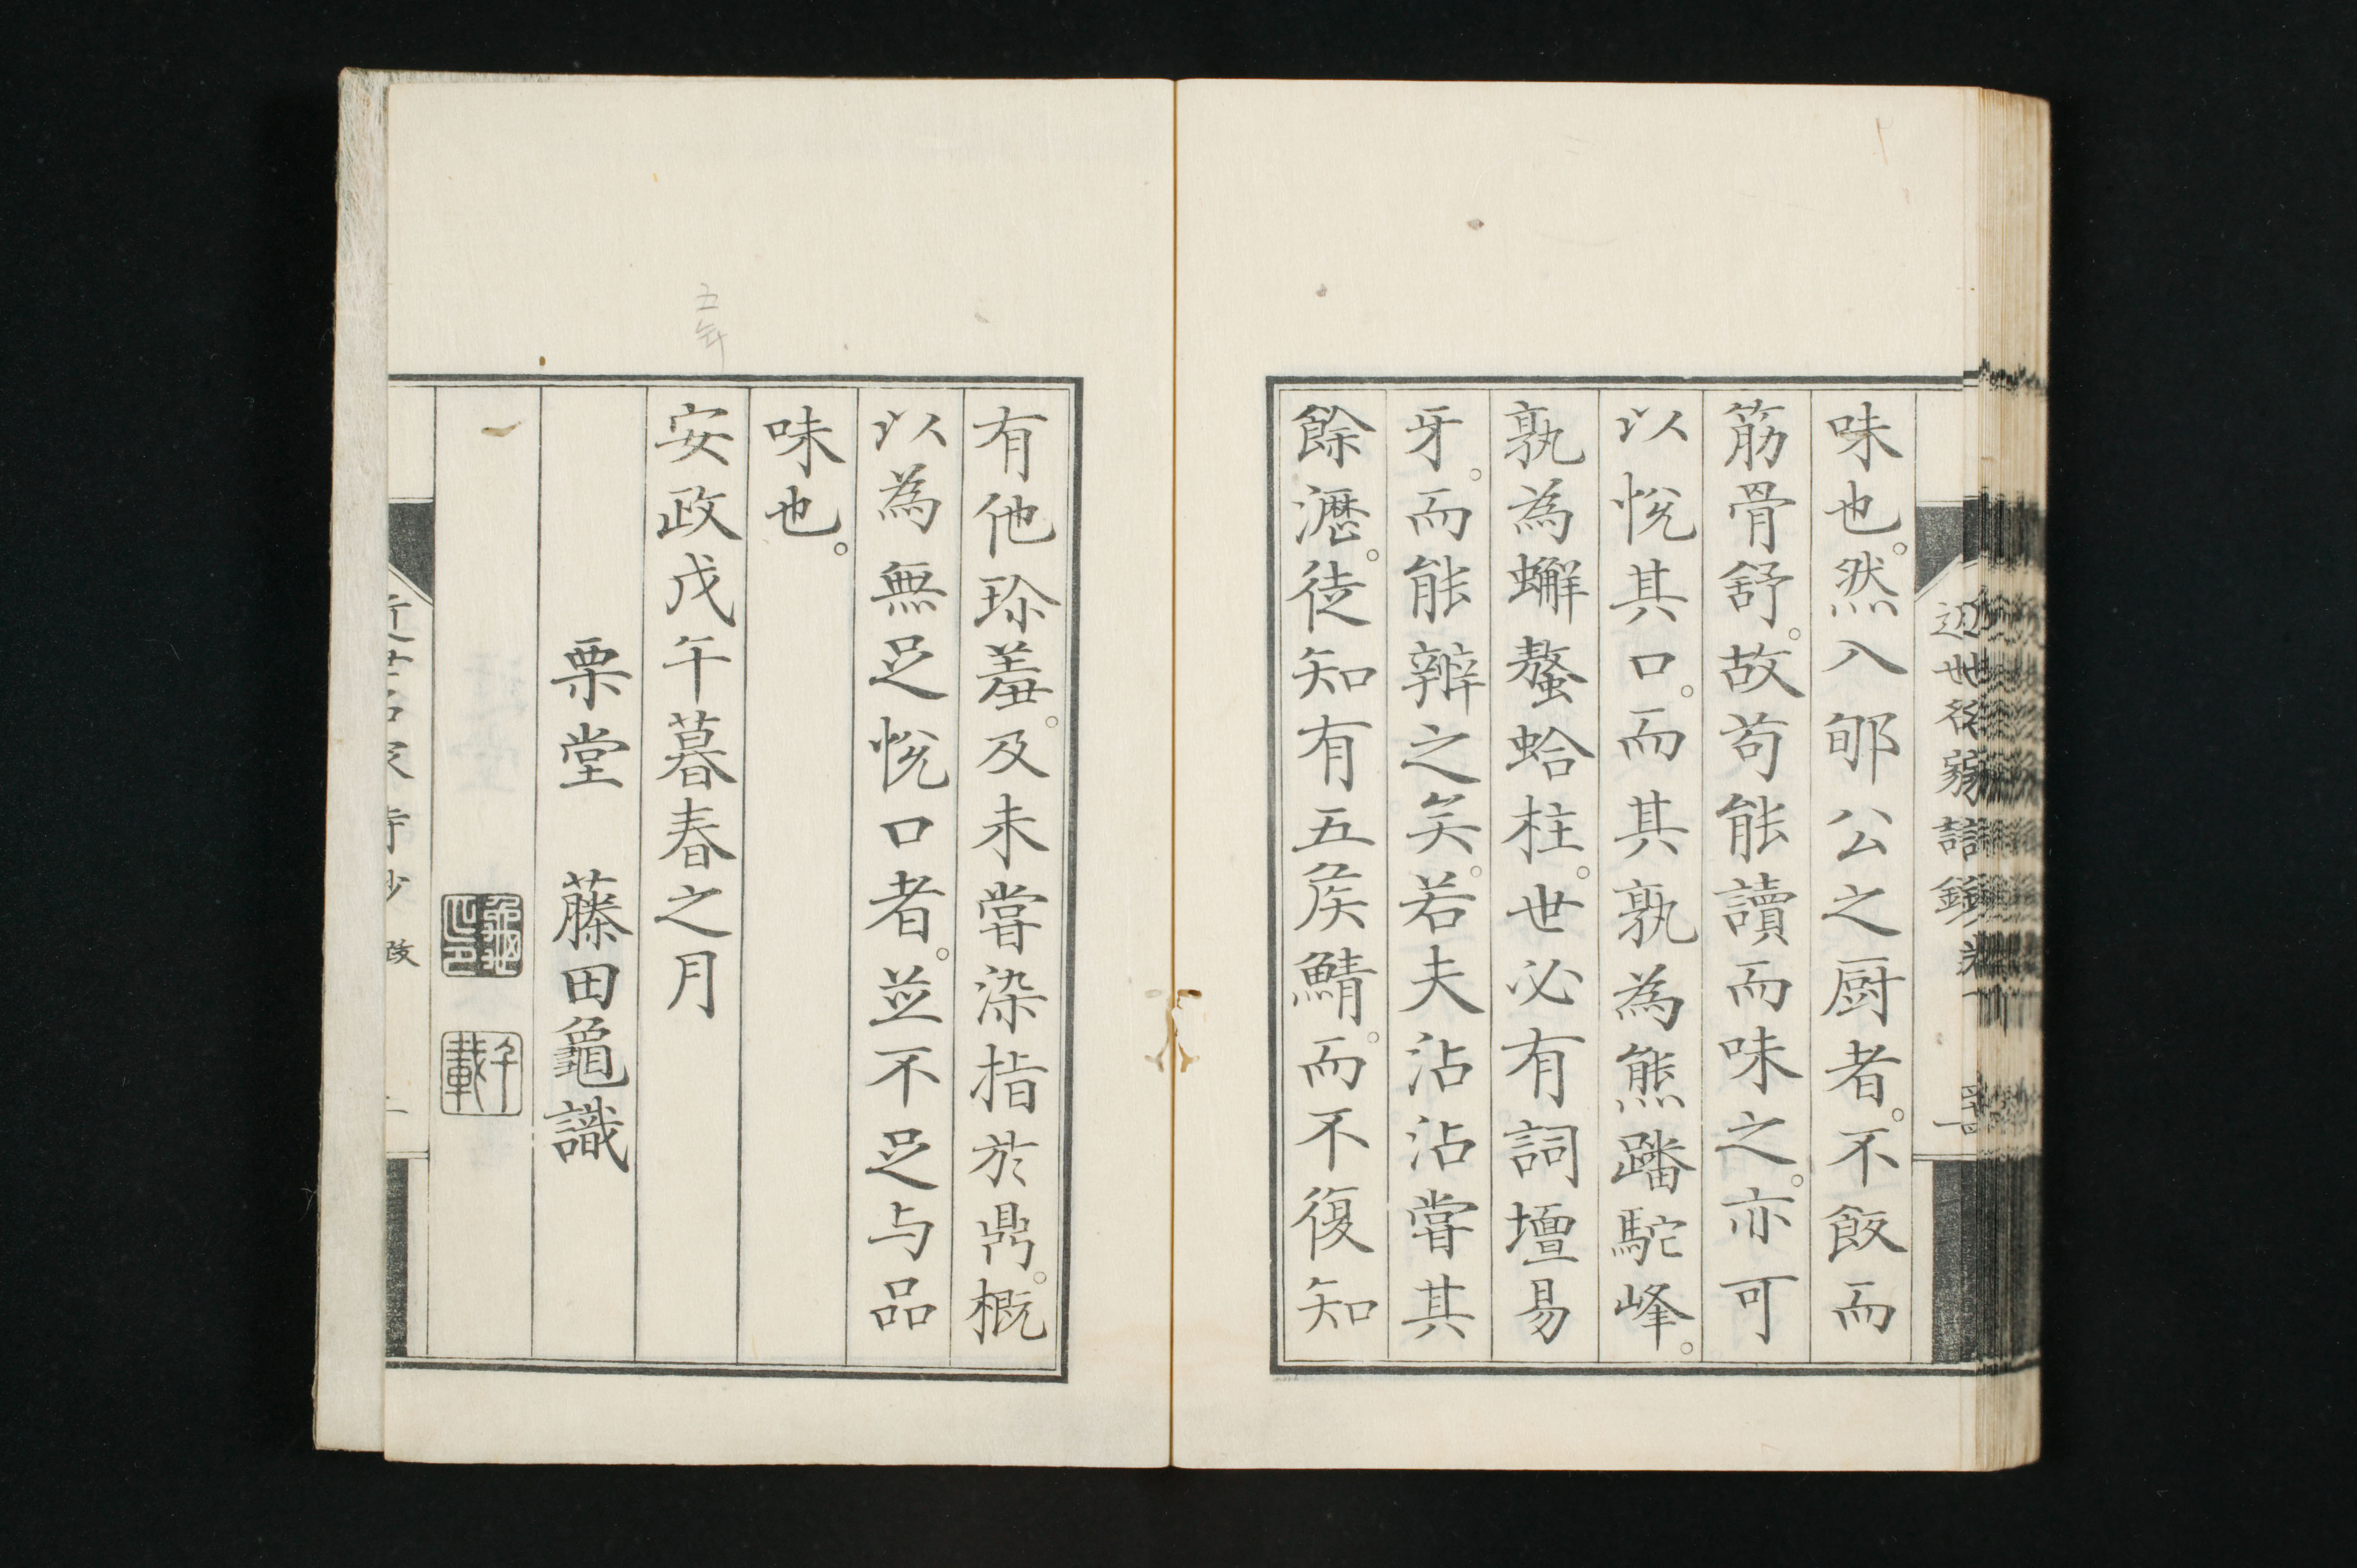 味也。然入郇公之厨者。不飯而
筋骨舒。故苟能讀而味之。亦可
以悅其口。而其孰為熊蹯駝峰。
孰為蠏螯蛤柱。世必有詞壇易
牙。而能辨之矣。若夫沾沾嘗其
餘瀝。徒知有五矦鯖。而不復知
有他珍羞。及未嘗染指於鼎。概
以為無足悅口者。並不足与品
味也。
五年
安政戊午暮春之月
栗堂 藤田龜識
千載